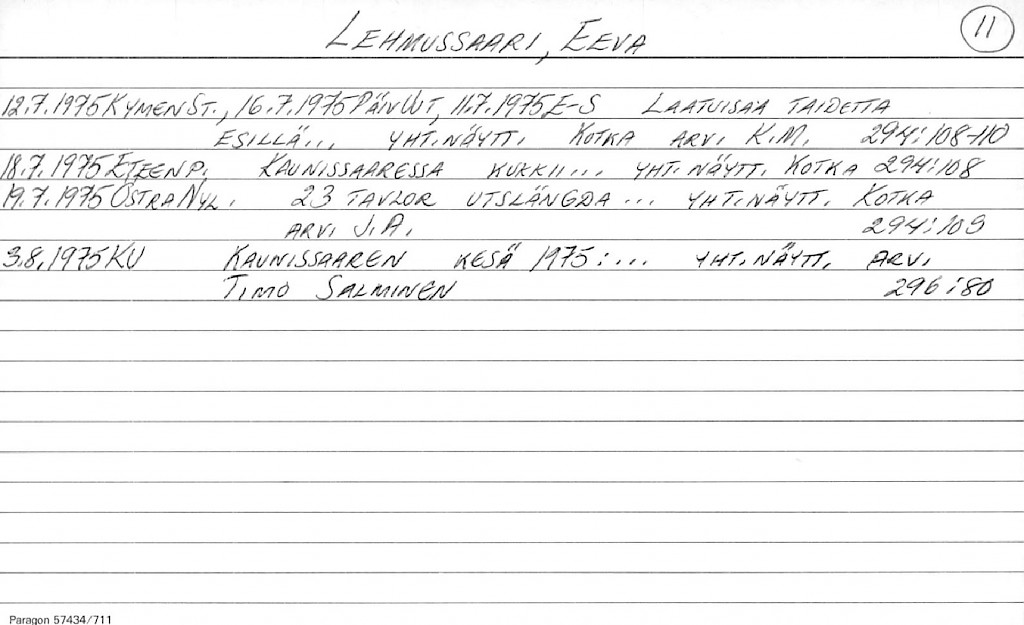 LEHMUSSAARI, EEVA 11
12.7.1975 KYMEN ST., 16.7.1975 PÄIV UUT, 11.7.1975 E-S LAATUISAA TAIDETTA
ESILLÄ... YHT.NÄYTT. KOTKA ARV. K.M. 294:108-110
18.7.1975 ETEENP. KAUNISSAARESSA KUKKII... YHT.NÄYTT. KOTKA 294:108
19.7.1975 ÖSTRA NYL. 23 TAVLOR UTSLÄNGDA ... YHT.NÄYTT. KOTKA
ARV. J.A. 294:109
3.8.1975 KU KAUNISSAAREN KESÄ 1975:... YHT.NÄYTT. ARV.
TIMO SALMINEN 296:80
Paragon 57434/711